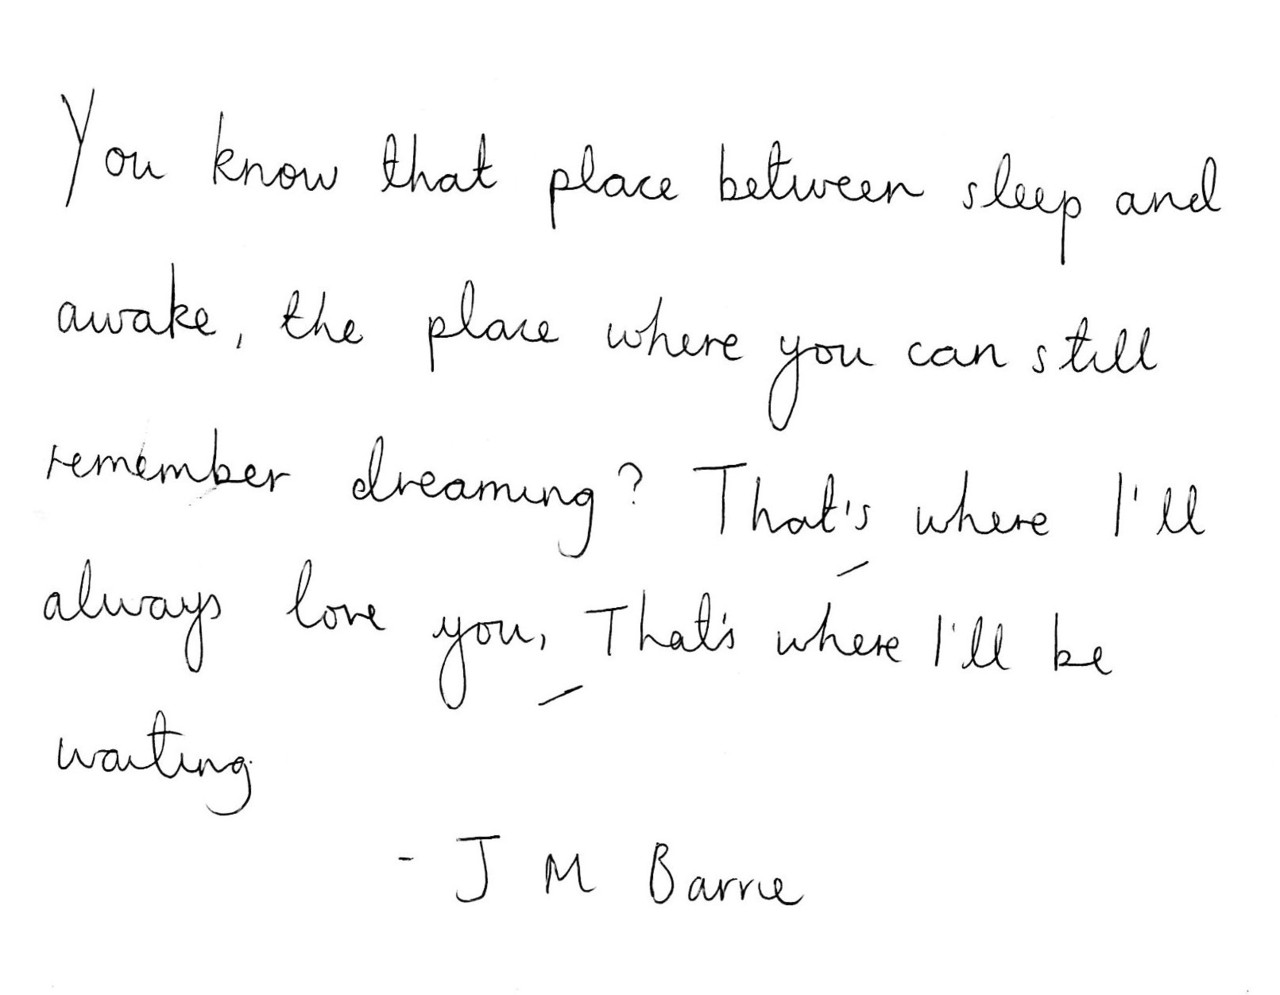 You know that place between sleep and
awake, the place where you can still
remember dreaming? That's where I'll
always love you, That's where I'll be
waiting
- J M Barrie